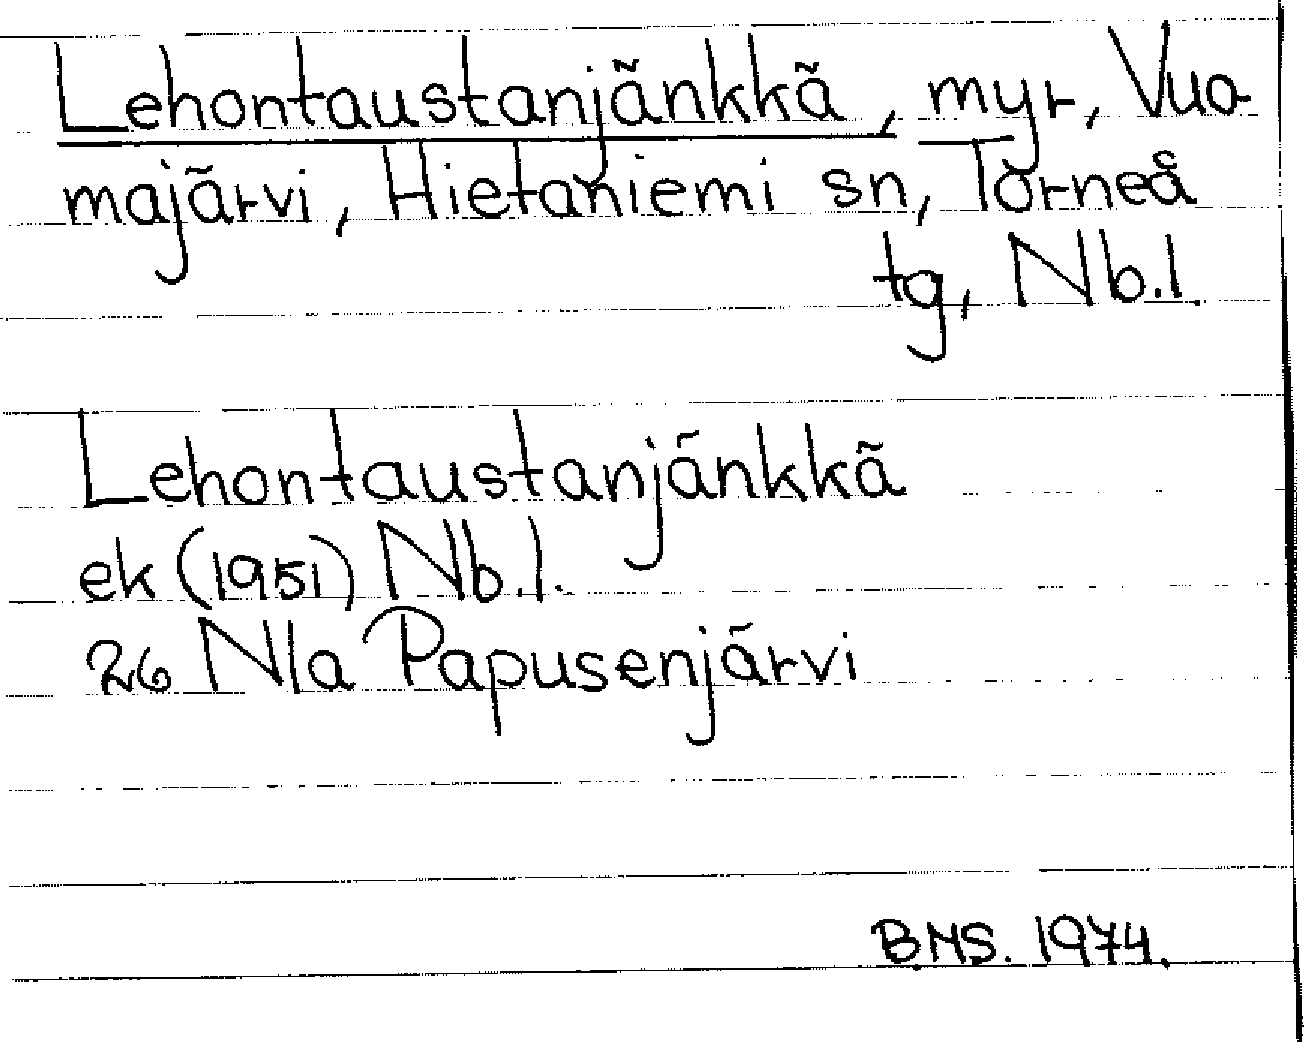 Lehontaustanjänkkä, myr, Vuo-
majärvi, Hietaniemi sn, Torneå
tg, Nb.l.
Lehontaustanjänkkä
ek (1951) Nb.l.
26 Nla Papusenjärvi
BMS. 1974.